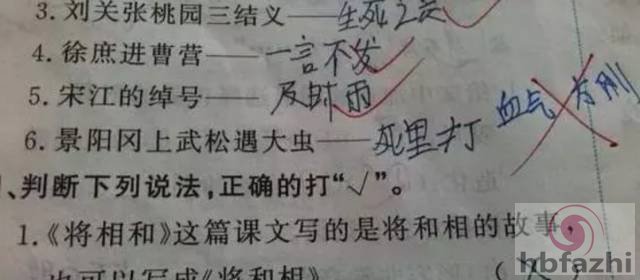 3.刘关张桃园三结义——生死之交
4.徐庶进曹营——一言不发
5.宋江的绰号——及时雨
6.景阳冈上武松遇大虫——死里打 血气方刚
、判断下列说法,正确的打“√”。
1.《将相和》这篇课文写的是将和相的故事,
也可以写成《将和相》 ( )
hbfazhi